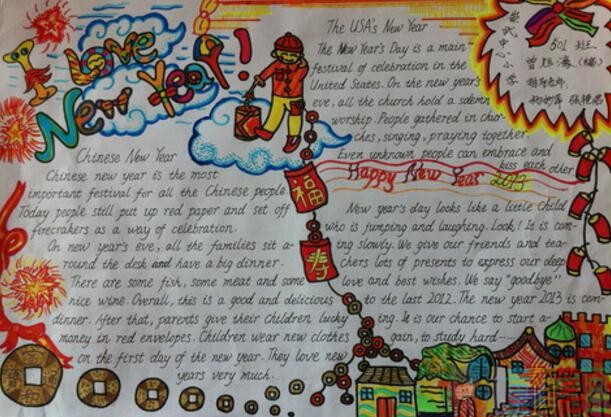 I Love
New Year!
The USA's New Year
The New Year's Day is a main
festival of celebration in the
United States. On the new year's
eve, all the church hold a solemn
worship. People gathered in chur-
ches, singing, praying together.
Even unknown people can embrace and
biss each other
Happy New Year 2013
中心小学
501 班
Chinese New Year
Chinese new year is the most
important festival for all the Chinese people.
Today people still put up red paper and set off
firecrakers as a way of celebration.
On new year's eve, all the families sit a-
round the desk and have a big dinner.
There are some fish, some meat and some
nice wine. Overall, this is a good and delicious
dinner. After that, parents give their children lucky
money in red envelopes. Children wear new clothes
on the first day of the new year. They love new
years very much.
福
寿
New year's day looks like a little child
who is jumping and laughing. Look! It is com-
ing slowly. We give our friends and tea-
chers lots of presents to express our deep
love and best wishes. We say "goodbye"
to the last 2012. The new year 2013 is com-
ing. It is our chance to start a-
gain, to study hard......